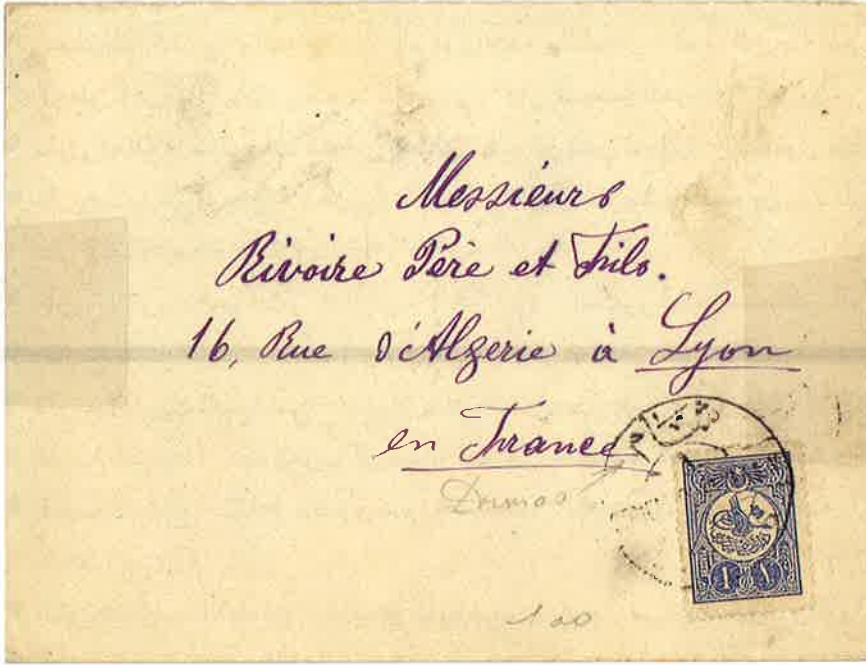 Messieurs
Rivoire Père et Fils.
16, Rue d'Algerie à Lyon
en France
1 ١
100